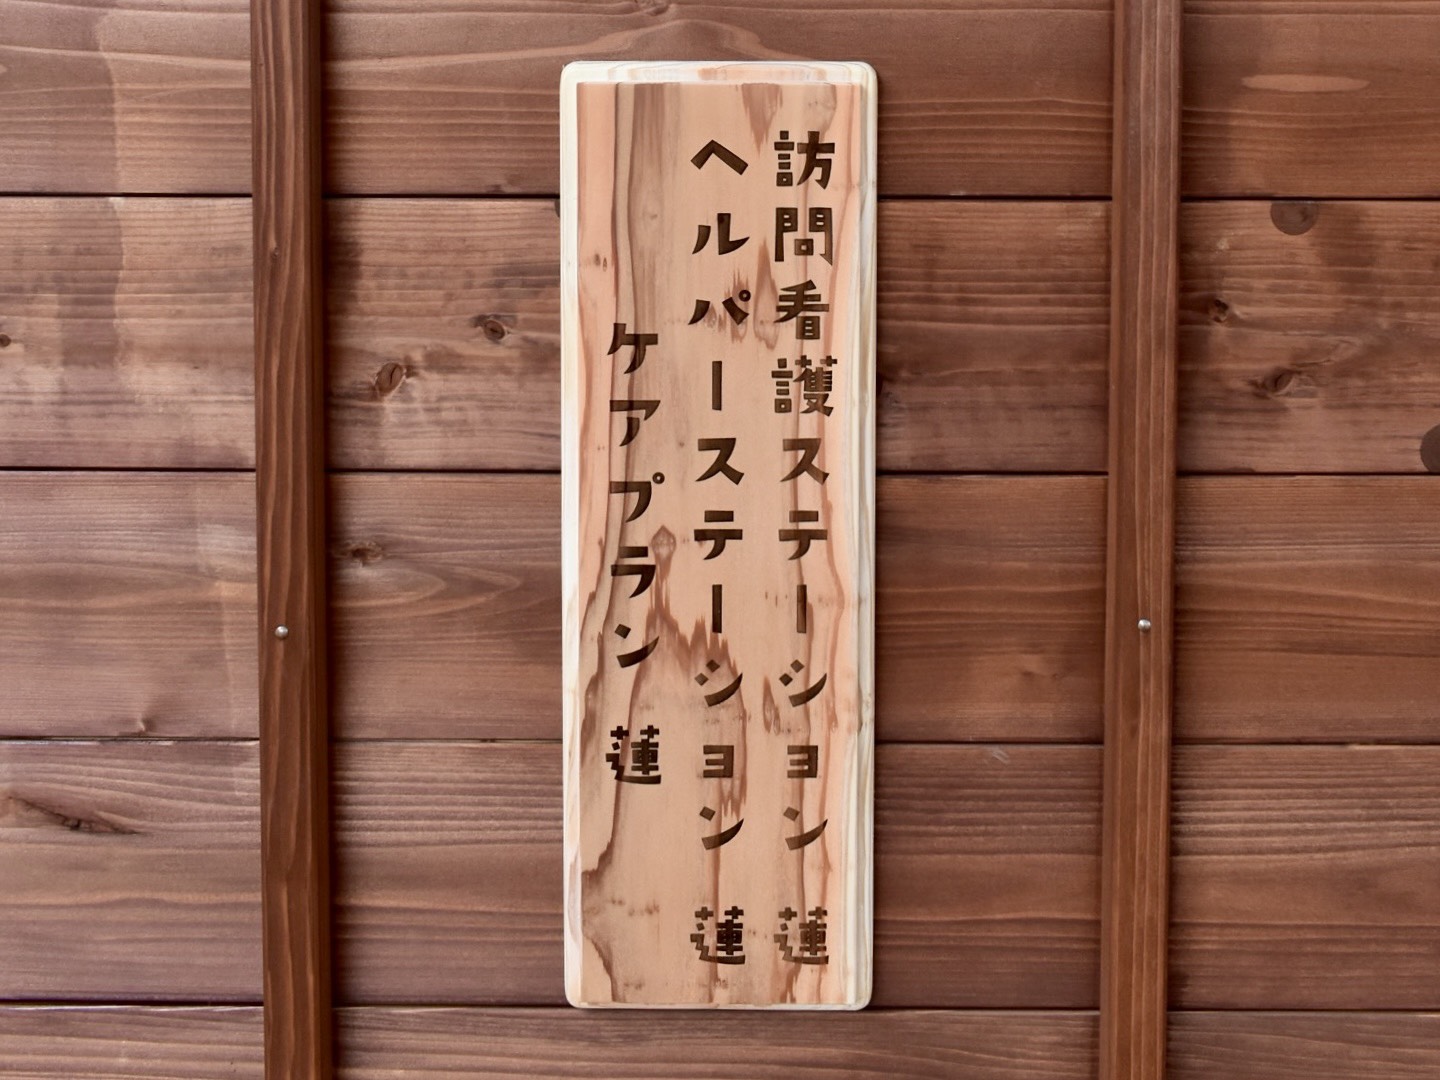 訪問看護ステーション 蓮
ヘルパーステーション 蓮
ケアプラン 蓮